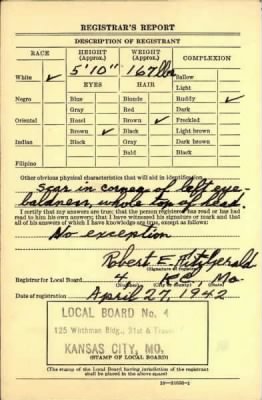 REGISTRAR'S REPORT
DESCRIPTION OF REGISTRANT
RACE HEIGHT (Approx.) WEIGHT (Approx.) COMPLEXION
White ✓ 5'10" 167 lbs Sallow
EYES HAIR Light
Negro Blue Blonde Ruddy ✓
Gray Red Dark
Oriental Hazel Brown ✓ Freckled
Brown ✓ Black Light brown
Indian Black Gray Dark brown
Bald Black
Filipino
Other obvious physical characteristics that will aid in identification
Scar in corner of left eye-
baldness, whole top of head.
I certify that my answers are true; that the person registered has read or has had read to him his own answers; that I have witnessed his signature or mark and that all of his answers of which I have knowledge are true, except as follows:
No exception
Robert E. Fitzgerald
(Signature of registrar)
Registrar for Local Board 4 K.C. Mo.
(Number) (City or county) (State)
Date of registration April 27, 1942
LOCAL BOARD No. 4
125 Bldg., 31st &
KANSAS CITY, MO.
(STAMP OF LOCAL BOARD)
(The stamp of the Local Board having jurisdiction of the registrant shall be placed in the above space)